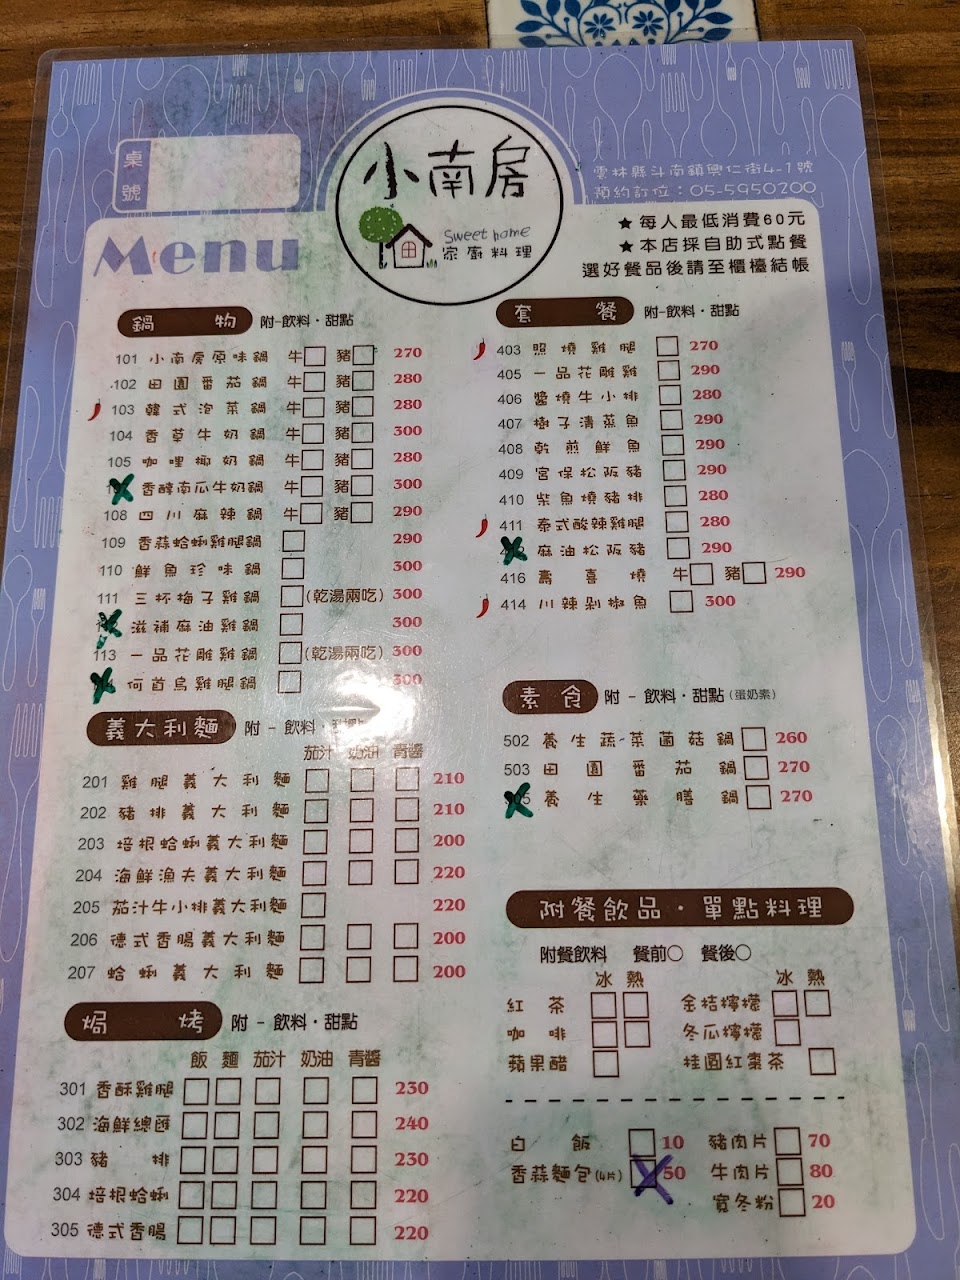 桌號
小南房
Sweet home
家廚料理
雲林縣斗南鎮興仁街4-1號
預約訂位：05-5950200
★每人最低消費60元
★本店採自助式點餐
選好餐品後請至櫃檯結帳
Menu
鍋物 附-飲料・甜點
101 小南房原味鍋 牛 豬 270
102 田園番茄鍋 牛 豬 280
103 韓式泡菜鍋 牛 豬 280
104 香草牛奶鍋 牛 豬 300
105 咖哩椰奶鍋 牛 豬 280
香醇南瓜牛奶鍋 牛 豬 300
108 四川麻辣鍋 牛 豬 290
109 香蒜蛤蜊雞腿鍋 290
110 鮮魚珍味鍋 300
111 三杯梅子雞鍋 (乾湯兩吃) 300
滋補麻油雞鍋 300
113 一品花雕雞鍋 (乾湯兩吃) 300
何首烏雞腿鍋 300
義大利麵 附 - 飲料・甜點
茄汁 奶油 青醬
201 雞腿義大利麵 210
202 豬排義大利麵 210
203 培根蛤蜊義大利麵 200
204 海鮮漁夫義大利麵 220
205 茄汁牛小排義大利麵 220
206 德式香腸義大利麵 200
207 蛤蜊義大利麵 200
焗烤 附 - 飲料・甜點
飯 麵 茄汁 奶油 青醬
301 香酥雞腿 230
302 海鮮總匯 240
303 豬排 230
304 培根蛤蜊 220
305 德式香腸 220
套餐 附-飲料・甜點
403 照燒雞腿 270
405 一品花雕雞 290
406 醬燒牛小排 280
407 樹子清蒸魚 290
408 乾煎鮮魚 290
409 宮保松阪豬 290
410 柴魚燒豬排 280
411 泰式酸辣雞腿 280
麻油松阪豬 290
416 壽喜燒 牛 豬 290
414 川辣剁椒魚 300
素食 附 - 飲料・甜點(蛋奶素)
502 養生蔬菜菌菇鍋 260
503 田園番茄鍋 270
養生藥膳鍋 270
附餐飲品・單點料理
附餐飲料 餐前○ 餐後○
冰 熱 冰 熱
紅茶 金桔檸檬
咖啡 冬瓜檸檬
蘋果醋 桂圓紅棗茶
白飯 10 豬肉片 70
香蒜麵包(4片) 50 牛肉片 80
寬冬粉 20